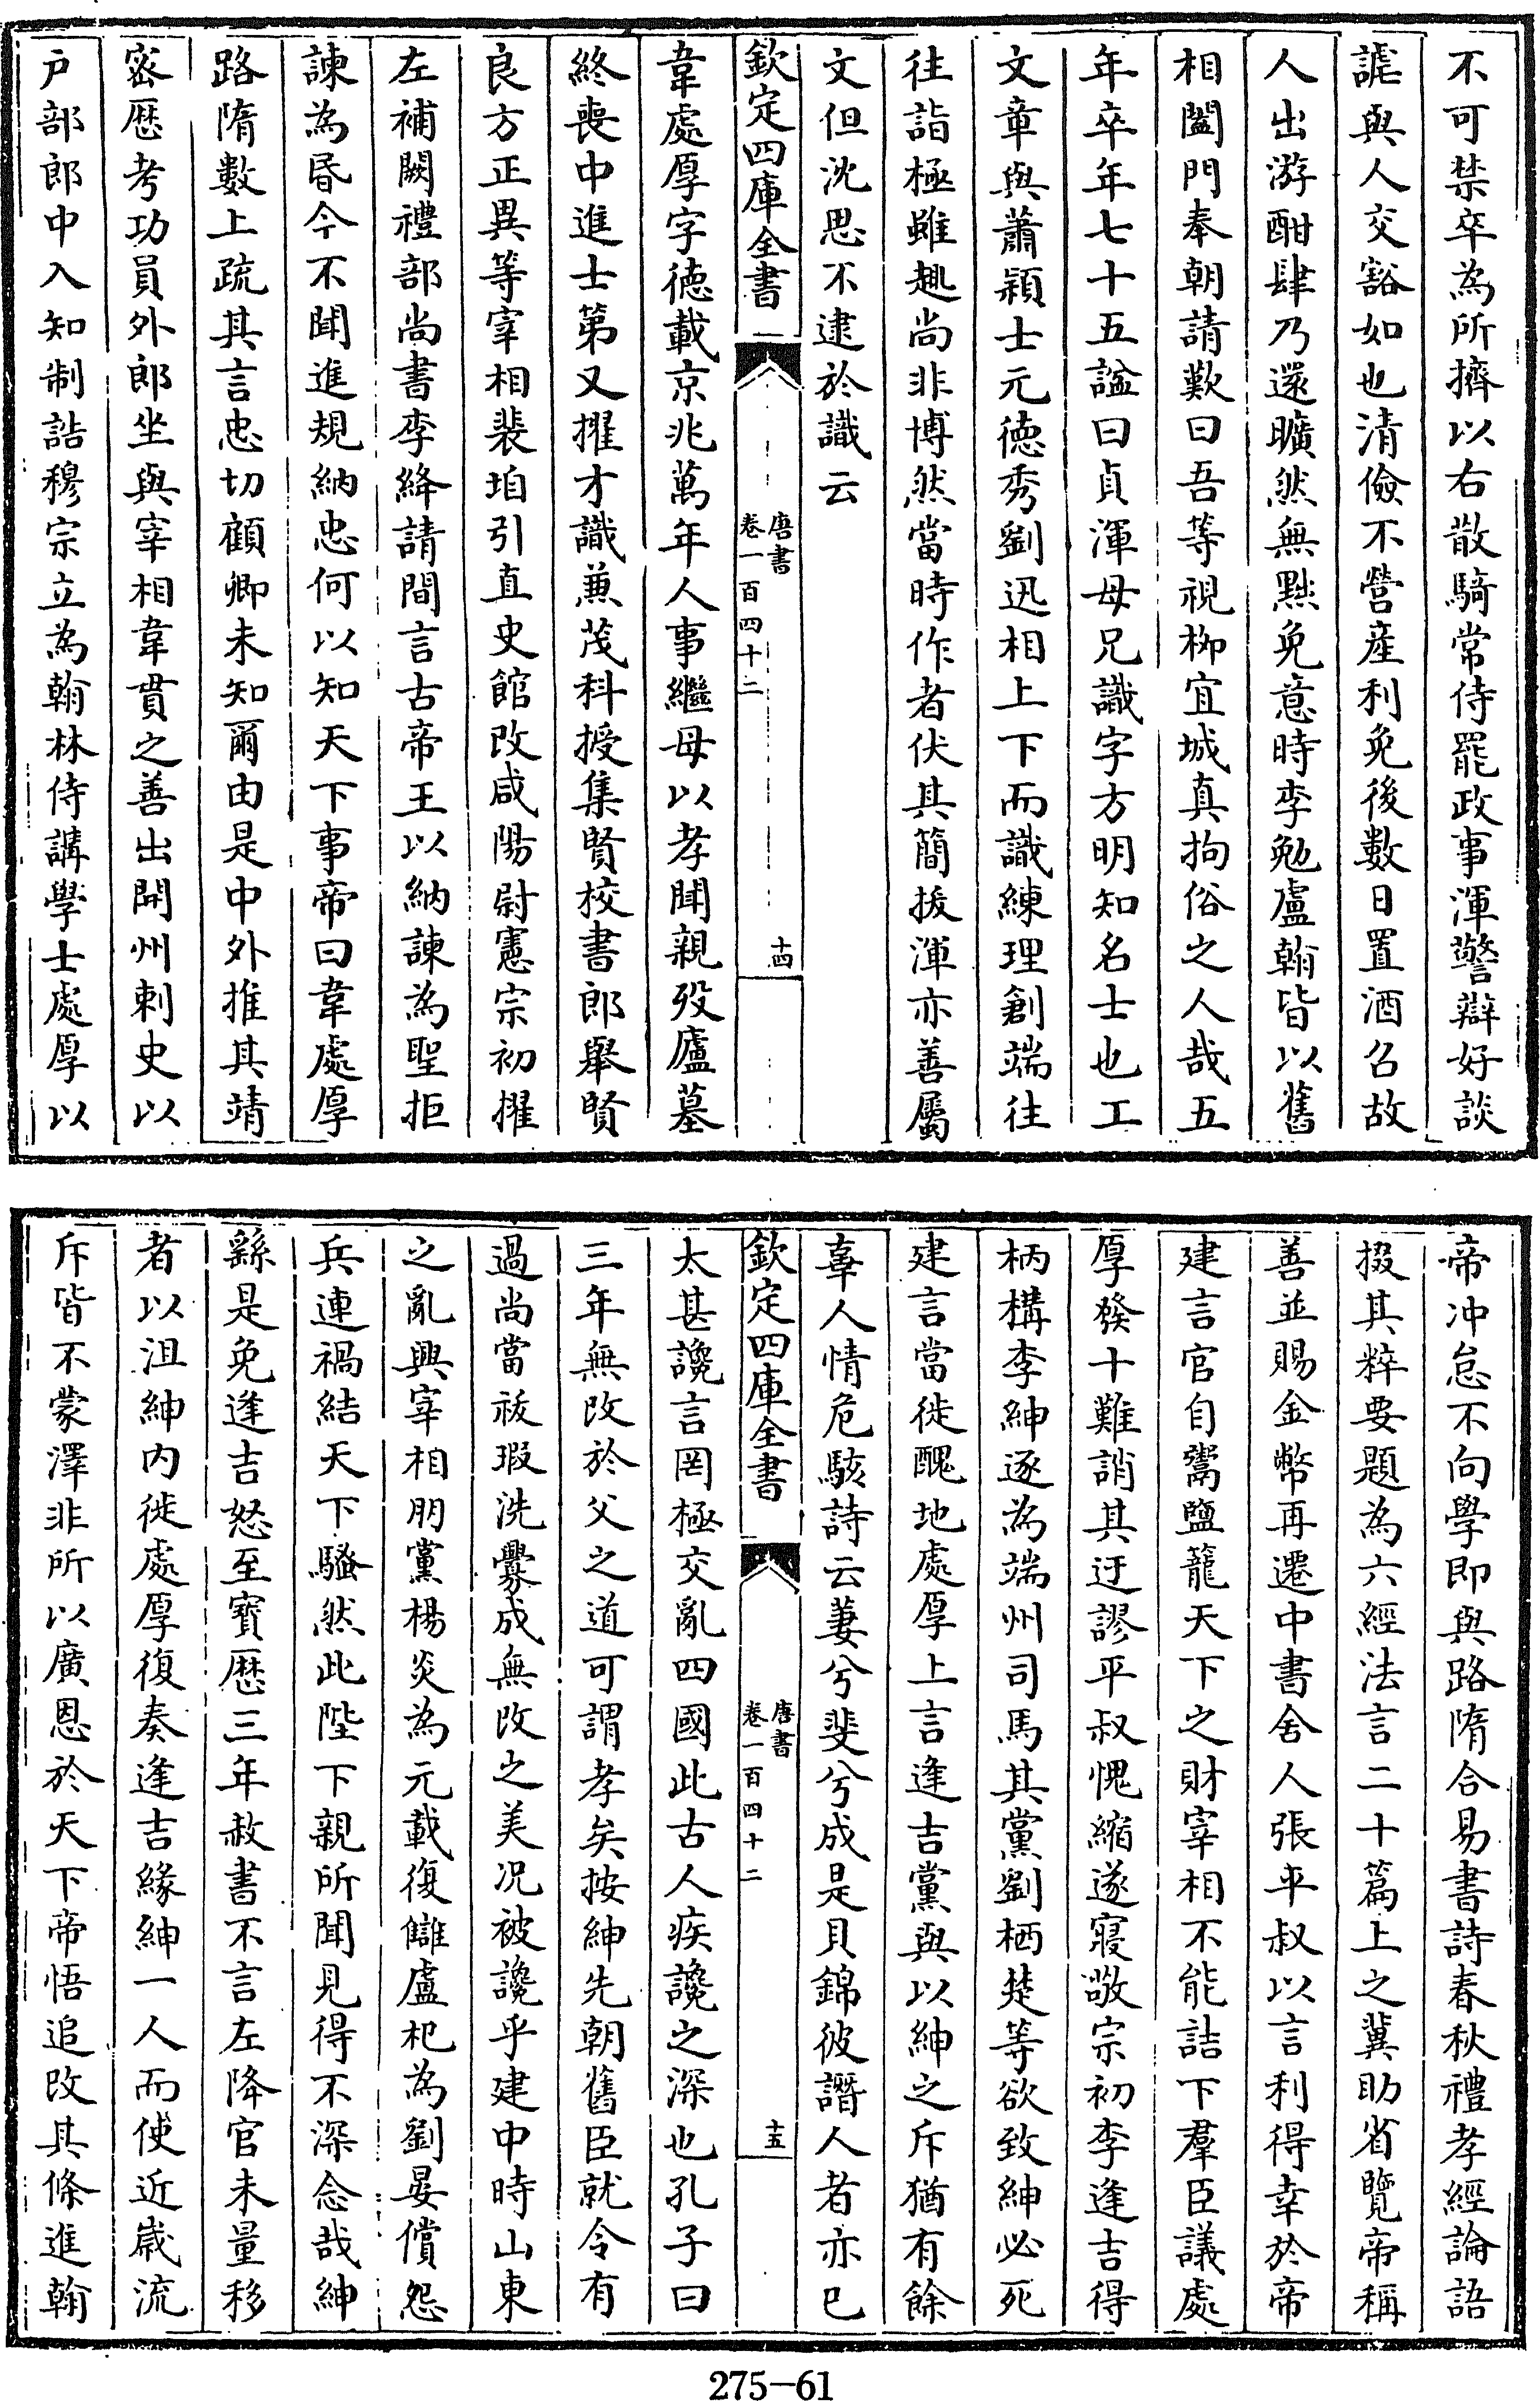 不可禁卒為所擠以右散騎常侍罷政事渾警辯好談
謔與人交豁如也清儉不營產利免後數日置酒召故
人出游酣肆乃還曠然無黜免意時李勉盧翰皆以舊
相闔門奉朝請歎曰吾等視柳宜城真拘俗之人哉五
年卒年七十五諡曰貞渾母兄識字方明知名士也工
文章與蕭穎士元徳秀劉迅相上下而識練理創端往
往詣極雖趣尚非博然當時作者伏其簡拔渾亦善屬
文但沈思不逮於識云
欽定四庫全書
唐書
卷一百四十二
十四
韋處厚字徳載京兆萬年人事繼母以孝聞親歿廬墓
終喪中進士第又擢才識兼茂科授集賢校書郎舉賢
良方正異等宰相裴垍引直史館改咸陽尉憲宗初擢
左補闕禮部尚書李絳請間言古帝王以納諫為聖拒
諫為昏今不聞進規納忠何以知天下事帝曰韋處厚
路隋數上疏其言忠切顧卿未知爾由是中外推其靖
密歴考功員外郎坐與宰相韋貫之善出開州刺史以
户部郎中入知制誥穆宗立為翰林侍講學士處厚以
帝冲怠不向學即與路隋合易書詩春秋禮孝經論語
掇其粹要題為六經法言二十篇上之冀助省覽帝稱
善並賜金幣再遷中書舍人張平叔以言利得幸於帝
建言官自鬻鹽籠天下之財宰相不能詰下羣臣議處
厚發十難誚其迂謬平叔愧縮遂寢敬宗初李逢吉得
柄構李紳逐為端州司馬其黨劉栖楚等欲致紳必死
建言當徙醜地處厚上言逢吉黨與以紳之斥猶有餘
辜人情危駭詩云萋兮斐兮成是貝錦彼譖人者亦已
欽定四庫全書
唐書
卷一百四十二
十五
太甚讒言罔極交亂四國此古人疾讒之深也孔子曰
三年無改於父之道可謂孝矣按紳先朝舊臣就令有
過尚當祓瑕洗釁成無改之美况被讒乎建中時山東
之亂興宰相朋黨楊炎為元載復讎盧杞為劉晏償怨
兵連禍結天下騷然此陛下親所聞見得不深念哉紳
繇是免逢吉怒至寶歴三年赦書不言左降官未量移
者以沮紳内徙處厚復奏逢吉緣紳一人而使近歲流
斥皆不蒙澤非所以廣恩於天下帝悟追改其條進翰
275-61